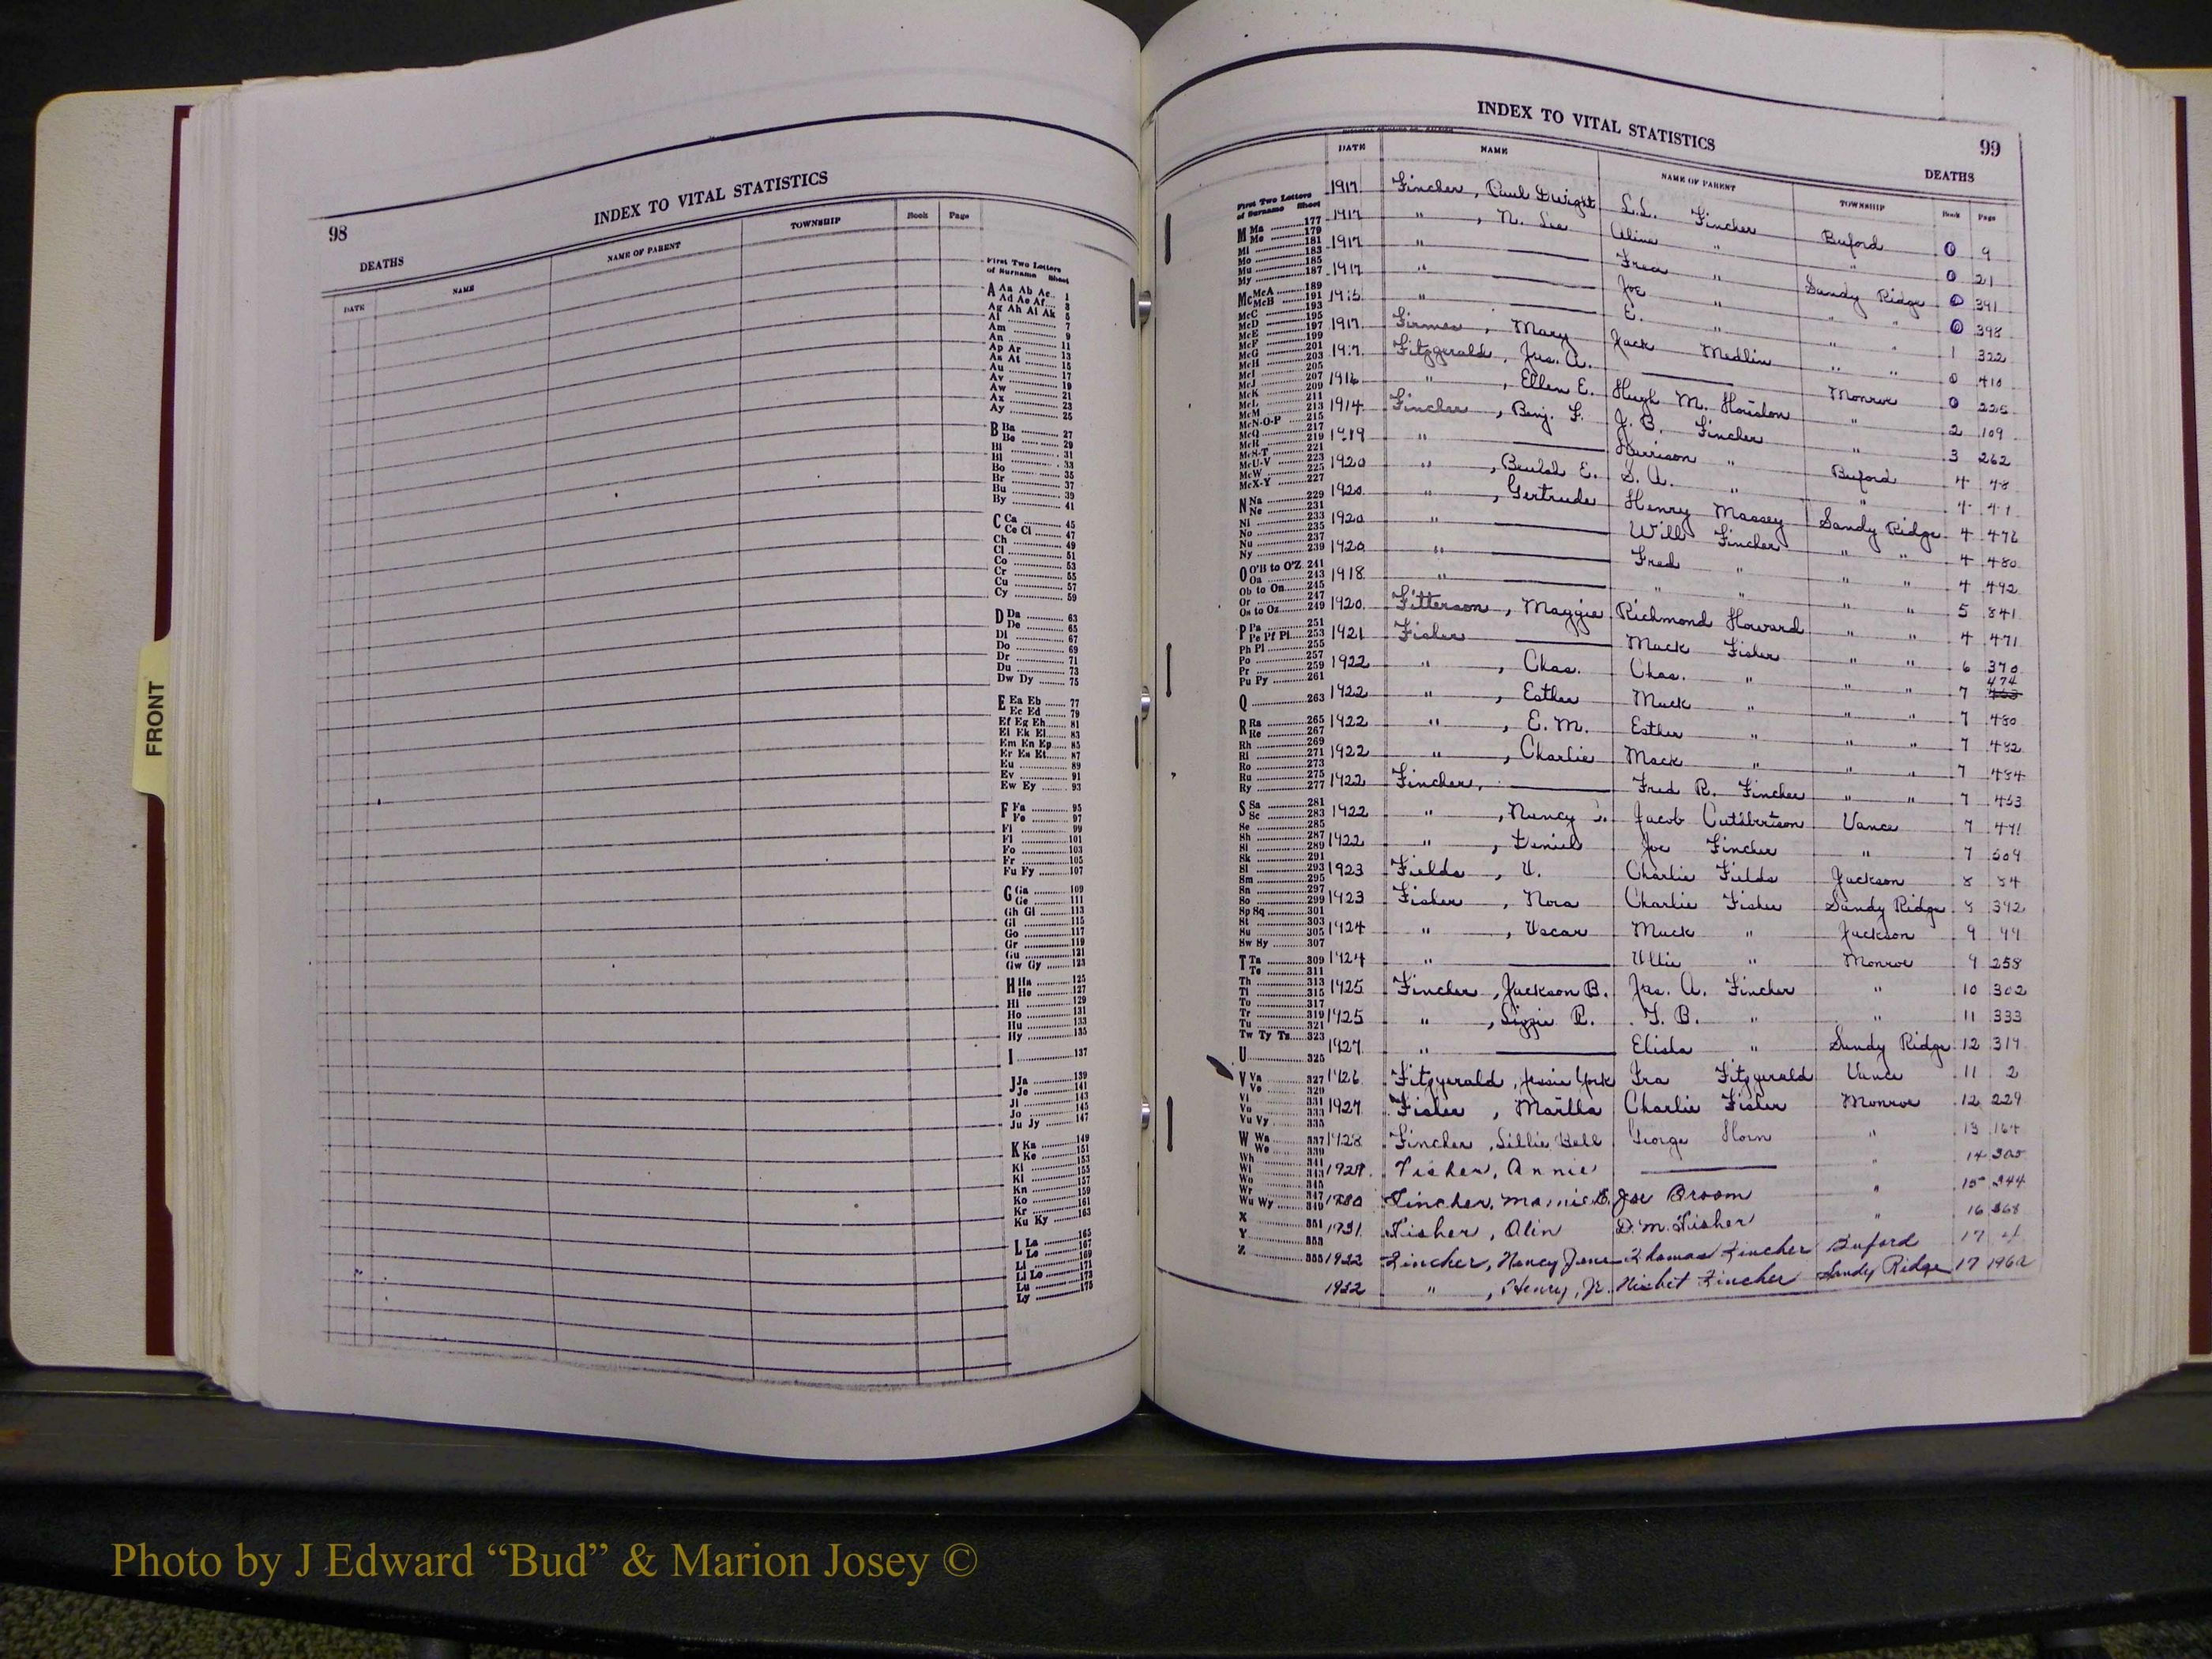 98
INDEX TO VITAL STATISTICS
DEATHS
DATE NAME NAME OF PARENT TOWNSHIP Book Page
First Two Letters
of Surname Sheet
A Aa Ab Ac 1
Ad Ae Af 3
Ag Ah Ai Ak 5
Al 7
Am 9
An 11
Ap Ar 13
As At 15
Au 17
Av 19
Aw 21
Ax 23
Ay 25
B Ba 27
Be 29
Bi 31
Bl 33
Bo 35
Br 37
Bu 39
By 41
C Ca 45
Ce Ci 47
Ch 49
Cl 51
Co 53
Cr 55
Cu 57
Cy 59
D Da 63
De 65
Di 67
Do 69
Dr 71
Du 73
Dw Dy 75
E Ea Eb 77
Ec Ed 79
Ef Eg Eh 81
Ei Ek El 83
Em En Ep 85
Er Es Et 87
Eu 89
Ev 91
Ew Ey 93
F Fa 95
Fe 97
Fi 99
Fl 101
Fo 103
Fr 105
Fu Fy 107
G Ga 109
Ge 111
Gh Gi 113
Gl 115
Go 117
Gr 119
Gu 121
Gw Gy 123
H Ha 125
He 127
Hi 129
Ho 131
Hu 133
Hy 135
I 137
J Ja 139
Je 141
Ji 143
Jo 145
Ju Jy 147
K Ka 149
Ke 151
Ki 153
Kl 155
Kn 157
Ko 159
Kr 161
Ku Ky 163
L La 165
Le 167
Li 169
Ll Lo 171
Lu 173
Ly 175
INDEX TO VITAL STATISTICS
99
DEATHS
DATE NAME NAME OF PARENT TOWNSHIP Book Page
First Two Letters
of Surname Sheet
M Ma 177
Me 179
Mi 181
Mo 183
Mu 185
My 187
Mc McA 189
McB 191
McC 193
McD 195
McE 197
McF 199
McG 201
McH 203
McI 205
McJ 207
McK 209
McL 211
McM 213
McN-O-P 215
McQ 217
McR 219
McS-T 221
McU-V 223
McW 225
McX-Y 227
N Na 229
Ne 231
Ni 233
No 235
Nu 237
Ny 239
O O'B to O'Z 241
Oa 243
Ob to On 245
Or 247
Os to Oz 249
P Pa 251
Pe Pf Pi 253
Ph Pl 255
Po 257
Pr 259
Pu Py 261
Q 263
R Ra 265
Re 267
Rh 269
Ri 271
Ro 273
Ru 275
Ry 277
S Sa 281
Sc 283
Se 285
Sh 287
Si 289
Sk 291
Sl 293
Sm 295
Sn 297
So 299
Sp Sq 301
St 303
Su 305
Sw Sy 307
T Ta 309
Te 311
Th 313
Ti 315
To 317
Tr 319
Tu 321
Tw Ty Tz 323
U 325
V Va 327
Ve 329
Vi 331
Vo 333
Vu Vy 335
W Wa 337
We 339
Wh 341
Wi 343
Wo 345
Wr 347
Wu Wy 349
X 351
Y 353
Z 355
1917 Fincher, Paul Dwight L.L. Fincher Buford 0 9
1917 " , N. Lee Aline " " 0 21
1917 " Fred " Sandy Ridge 0 391
1917 " Joe " " " 0 398
" E. " " " 1 322
1917 , Mary Jack Medlin " " 0 410
Fitzgerald, Jas. A. Monroe 0 225
1916 " , Ellen E. Hugh M. Houston " 2 109
1914 Fincher, Benj. F. J. B. Fincher " 3 262
1919 " Harrison " Buford 4 48
1920 " , Beulah E. S. A. " " 4
1920 " , Gertrude Henry Massey Sandy Ridge 4 476
1920 " Will Fincher " " 4 480
1920 " Fred " " " 4 492
1918 " " " " " 5 841
1920 Fitterson, Maggie Richmond Howard " " 4 471
1921 Fisher Mack Fisher " " 6 370
1922 " , Chas. Chas. " " " 7 474
1922 " , Esther Mack " " " 7 480
1922 " , E. M. Esther " " " 7 482
1922 " , Charlie Mack " " " 7 484
1922 Fincher, Fred R. Fincher " " 7 453
1922 " , Nancy Jacob Cuthbertson Vance 7 471
1922 " , Joe Fincher " 7 509
1923 Fields, U. Charlie Fields Jackson 8 84
1923 Fisher, Nora Charlie Fisher Sandy Ridge 8 342
1924 " , Oscar Mack " Jackson 9 99
1924 " Ollie " Monroe 9 258
1925 Fincher, Jackson B. Jas. A. Fincher " 10 302
1925 " , Lizzie R. T. B. " " 11 333
1927 " Elisha " Sandy Ridge 12 317
1926 Fitzgerald, Jessie York Ira Fitzgerald Vance 11 2
1927 Fisher, Martha Charlie Fisher Monroe 12 229
1928 Fincher, Lillie Bell George Horn " 13 164
1929 Fisher, Annie " 14 305
1930 Fincher, Mamie E. Joe Broom " 15 244
1931 Fisher, Olin D. M. Fisher " 16 368
1932 Fincher, Nancy Jane Thomas Fincher Buford 17
1932 " , Henry, Jr. Nisbet Fincher Sandy Ridge 17
FRONT
Photo by J Edward “Bud” & Marion Josey ©